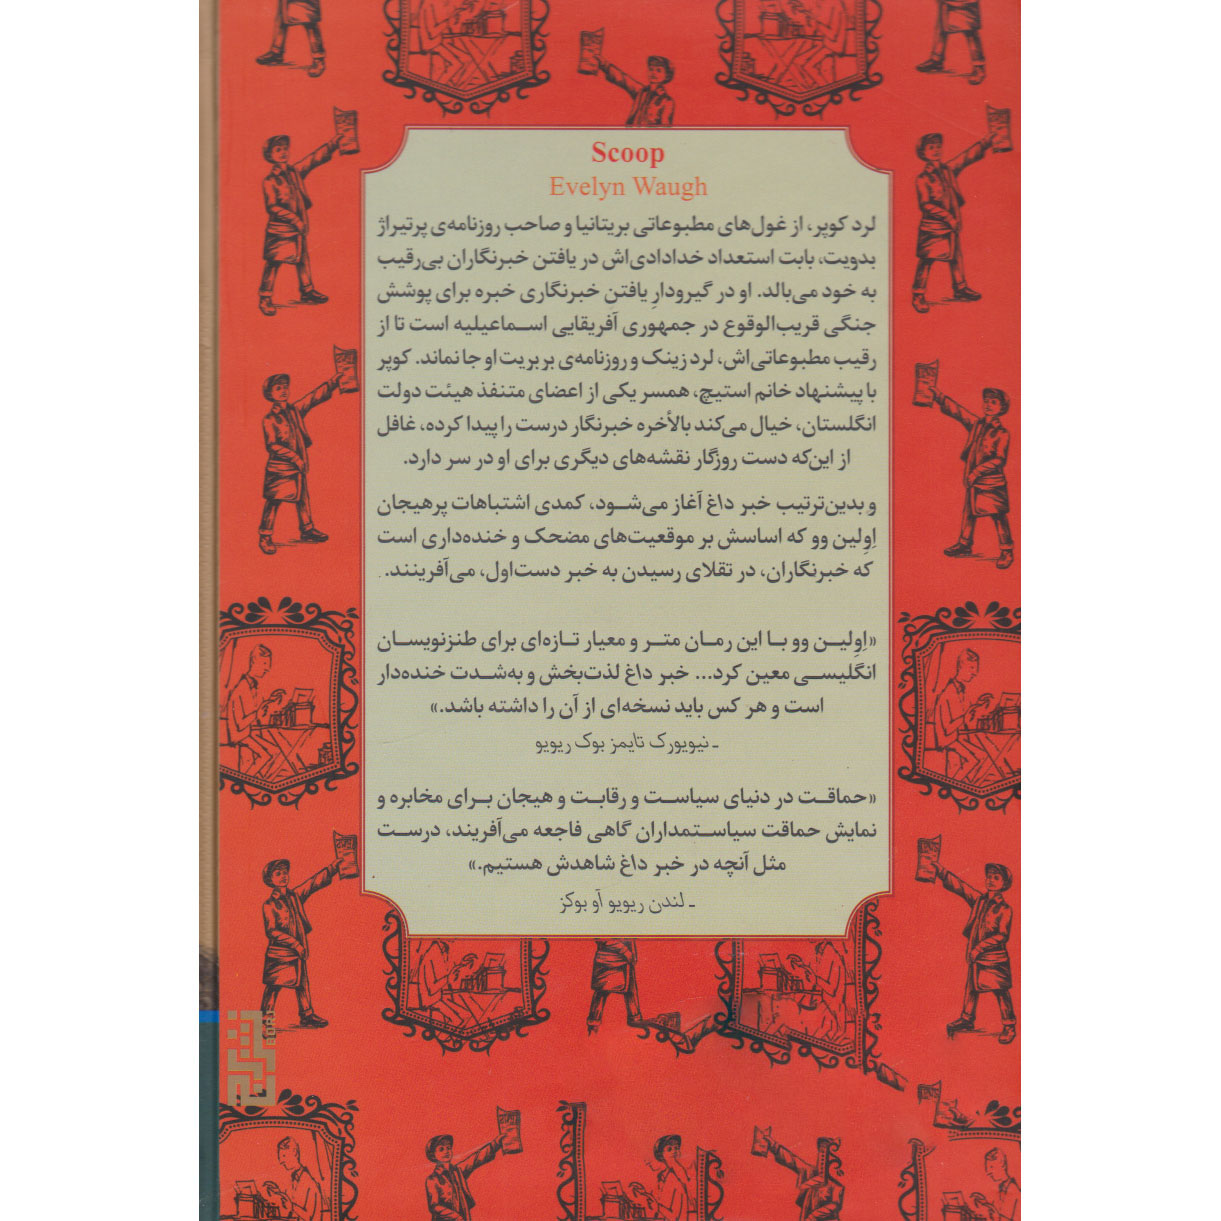 Scoop
Evelyn Waugh
لرد کوپر، از غول‌های مطبوعاتی بریتانیا و صاحب روزنامه‌ی پرتیراژ
بدویت، بابت استعداد خدادادی‌اش در یافتن خبرنگاران بی‌رقیب
به خود می‌بالد. او در گیرودارِ یافتن خبرنگاری خبره برای پوشش
جنگی قریب‌الوقوع در جمهوری آفریقایی اسماعیلیه است تا از
رقیب مطبوعاتی‌اش، لرد زینک و روزنامه‌ی بربریت او جا نماند. کوپر
با پیشنهاد خانم استیچ، همسر یکی از اعضای متنفذ هیئت دولت
انگلستان، خیال می‌کند بالأخره خبرنگار درست را پیدا کرده، غافل
از این‌که دست روزگار نقشه‌های دیگری برای او در سر دارد.
و بدین‌ترتیب خبر داغ آغاز می‌شود، کمدی اشتباهات پرهیجان
اِوِلین وو که اساسش بر موقعیت‌های مضحک و خنده‌داری است
که خبرنگاران، در تقلای رسیدن به خبر دست‌اول، می‌آفرینند.
«اِوِلین وو با این رمان متر و معیار تازه‌ای برای طنزنویسان
انگلیسی معین کرد... خبر داغ لذت‌بخش و به‌شدت خنده‌دار
است و هر کس باید نسخه‌ای از آن را داشته باشد.»
ـ نیویورک تایمز بوک ریویو
«حماقت در دنیای سیاست و رقابت و هیجان برای مخابره و
نمایش حماقت سیاستمداران گاهی فاجعه می‌آفریند، درست
مثل آنچه در خبر داغ شاهدش هستیم.»
ـ لندن ریویو آو بوکز